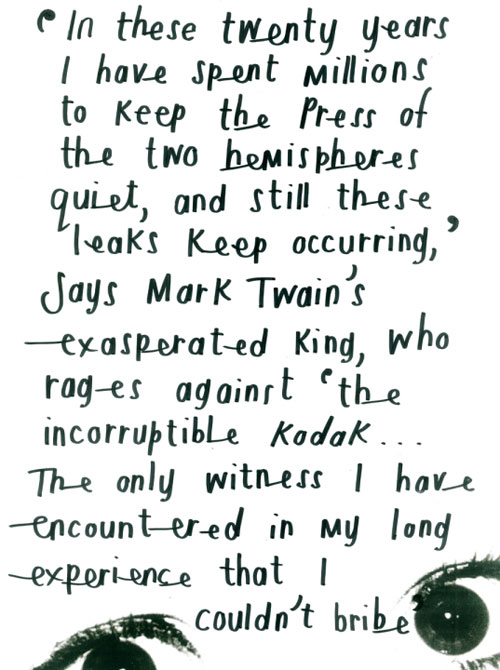 ‘In these twenty years
I have spent Millions
to Keep the Press of
the two hemispheres
quiet, and still these
leaks Keep occurring,’
Says Mark Twain's
exasperated King, who
rages against ‘the
incorruptible Kodak...
The only witness I have
encountered in My long
experience that I
couldn't bribe’